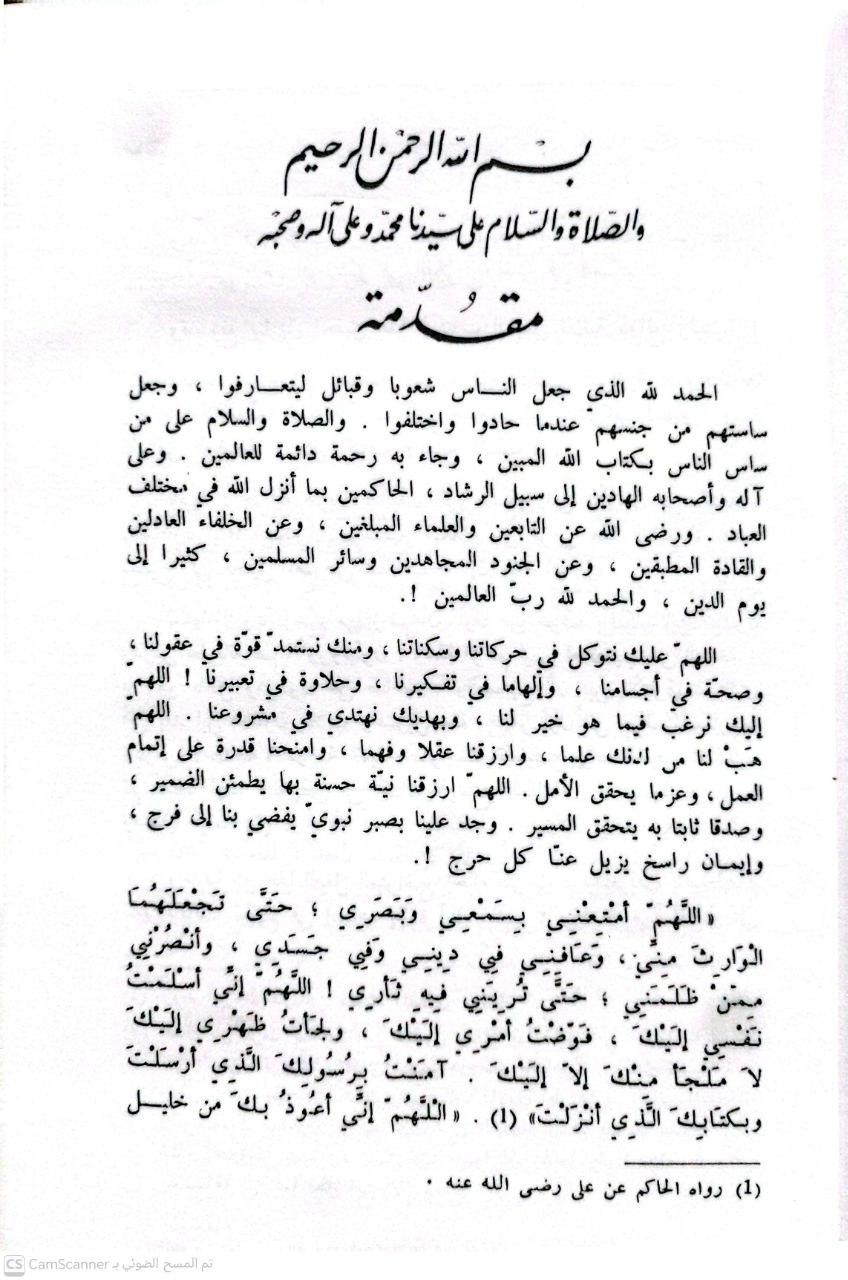 بسم الله الرحمن الرحيم
والصّلاة والسّلام على سيّدنا محمّد وعلى آله وصحبه
مقدّمة
الحمد لله الذي جعل النـاس شعوبا وقبائل ليتعـارفوا ، وجعل
ساستهم من جنسهم عندما حادوا واختلفوا . والصلاة والسلام على من
ساس الناس بكتاب الله المبين ، وجاء به رحمة دائمة للعالمين . وعلى
آله وأصحابه الهادين إلى سبيل الرشاد ، الحاكمين بما أنزل الله في مختلف
العباد . ورضى الله عن التابعين والعلماء المبلغين ، وعن الخلفاء العادلين
والقادة المطبقين ، وعن الجنود المجاهدين وسائر المسلمين ، كثيرا إلى
يوم الدين ، والحمد لله ربّ العالمين !.
اللهمّ عليك نتوكل في حركاتنا وسكناتنا ، ومنك نستمدّ قوّة في عقولنا ،
وصحّة في أجسامنا ، وإلهاما في تفكيرنا ، وحلاوة في تعبيرنا ! اللهمّ
إليك نرغب فيما هو خير لنا ، وبهديك نهتدي في مشروعنا . اللهمّ
هَبْ لنا من لدنك علما ، وارزقنا عقلا وفهما ، وامنحنا قدرة على إتمام
العمل ، وعزما يحقق الأمل . اللهمّ ارزقنا نيّة حسنة بها يطمئن الضمير ،
وصدقا ثابتا به يتحقق المسير . وجد علينا بصبر نبويّ يفضي بنا إلى فرج ،
وإيمـان راسخ يزيل عنّـا كل حرج !.
« اللَّهُمّ أمْتِعْنِـي بِسَمْعِي وَبَصَرِي ؛ حَتَّى تَجْعَلَهُمَا
الْوَارِثَ مِنِّي ، وَعَافِنِـي فِي دِينِـي وَفِي جَسَدِي ، وأنْصُرْنِي
مِمَّنْ ظَلَمَنِي ؛ حَتَّى تُرِيَنِي فِيهِ ثَأرِي ! اللَّهُمّ إنِّي أسْلَمْتُ
نَفْسِي إلَيْكَ ، فَوّضْتُ أمْرِي إلَيْكَ ، ولَجَأتُ ظَهْرِي إلَيْكَ
لاَ مَلْجَأ مِنْكَ إلاّ إلَيْكَ . آمَنْتُ بِرُسُولِكَ الَّذِي أرْسَلْتَ
وبكتَابِكَ الَّذِي أنْزَلْتَ» (1) . « الْلَّهُمّ إنِّي أعُوذُ بكَ من خليـل
(1) رواه الحاكم عن على رضى الله عنه .
CS CamScanner تم المسح الضوئي بـ